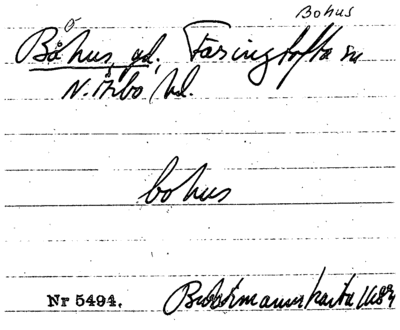 Bohus
Båhus, gd, Färingtofta sn
N. Åsbo hd.
bohus
Nr 5494. Buhrmanns karta 1684